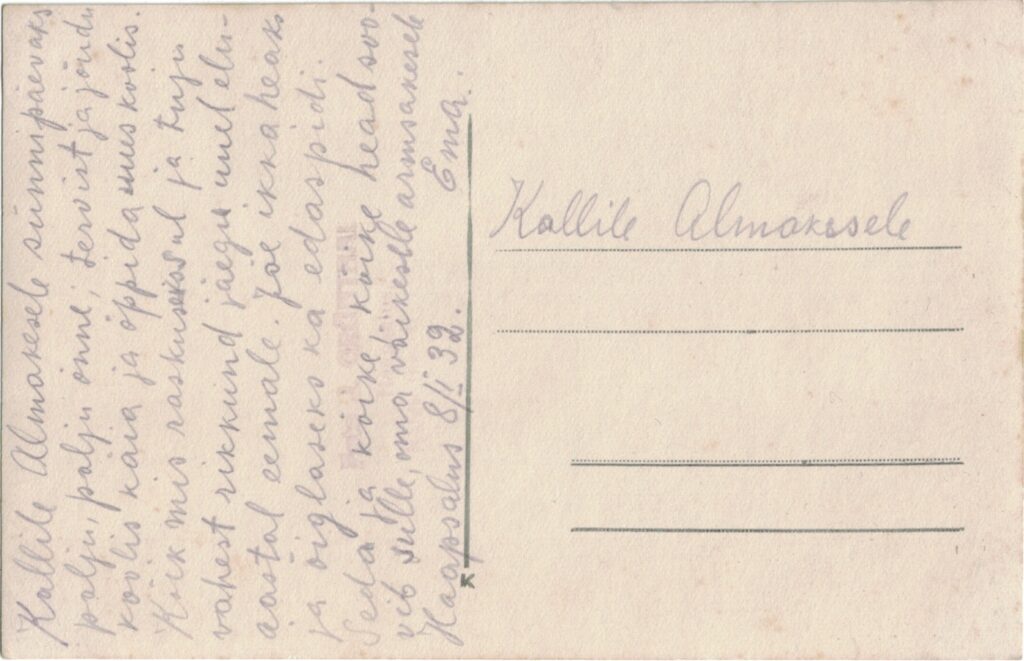 Kallile Almakesele sünnipäevaks
palju, palju õnne, tervist ja jõudu
koolis käia ja õppida uues koolis.
Kõik mis raskusesul ja tuju
vahest rikkund jäegu uuel elu-
aastal eemale. Jõe ikka heaks
ja õiglaseks ka edaspidi.
Seda ja kõike, kõike head soo-
vib sulle, oma väikesele armsakesele
Haapsalus 8/I 32. Ema.
Kallile Almakesele